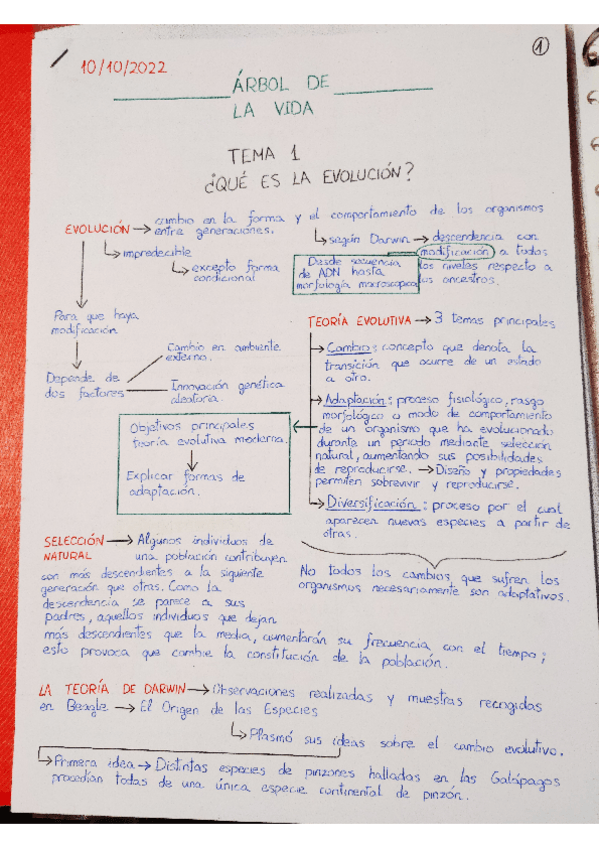 1
10/10/2022
ÁRBOL DE
LA VIDA
TEMA 1
¿QUÉ ES LA EVOLUCIÓN?
EVOLUCIÓN → cambio en la forma y el comportamiento de los organismos
entre generaciones.
↳ impredecible
↳ excepto forma
condicional
↳ según Darwin → descendencia con
modificación a todos
los niveles respecto a
sus ancestros.
Desde secuencia
de ADN hasta
morfología macroscópica
Para que haya
modificación
Depende de
dos factores
Cambio en ambiente
externo.
Innovación genética
aleatoria.
TEORÍA EVOLUTIVA → 3 temas principales
→ Cambio: concepto que denota la
transición que ocurre de un estado
a otro.
→ Adaptación: proceso fisiológico, rasgo
morfológico o modo de comportamiento
de un organismo que ha evolucionado
durante un periodo mediante selección
natural, aumentando sus posibilidades
de reproducirse. → Diseño y propiedades
permiten sobrevivir y reproducirse.
→ Diversificación: proceso por el cual
aparecen nuevas especies a partir de
otras.
Objetivos principales
teoría evolutiva moderna.
Explicar formas de
adaptación.
No todos los cambios que sufren los
organismos necesariamente son adaptativos.
SELECCIÓN → Algunos individuos de
NATURAL una población contribuyen
con más descendientes a la siguiente
generación que otras. Como la
descendencia se parece a sus
padres, aquellos individuos que dejan
más descendientes que la media, aumentarán su frecuencia con el tiempo;
esto provoca que cambie la constitución de la población.
LA TEORÍA DE DARWIN → Observaciones realizadas y muestras recogidas
en Beagle → El Origen de las Especies
↳ Plasmó sus ideas sobre el cambio evolutivo.
↳ Primera idea → Distintas especies de pinzones hallados en las Galápagos
procedían todas de una única especie continental de pinzón.